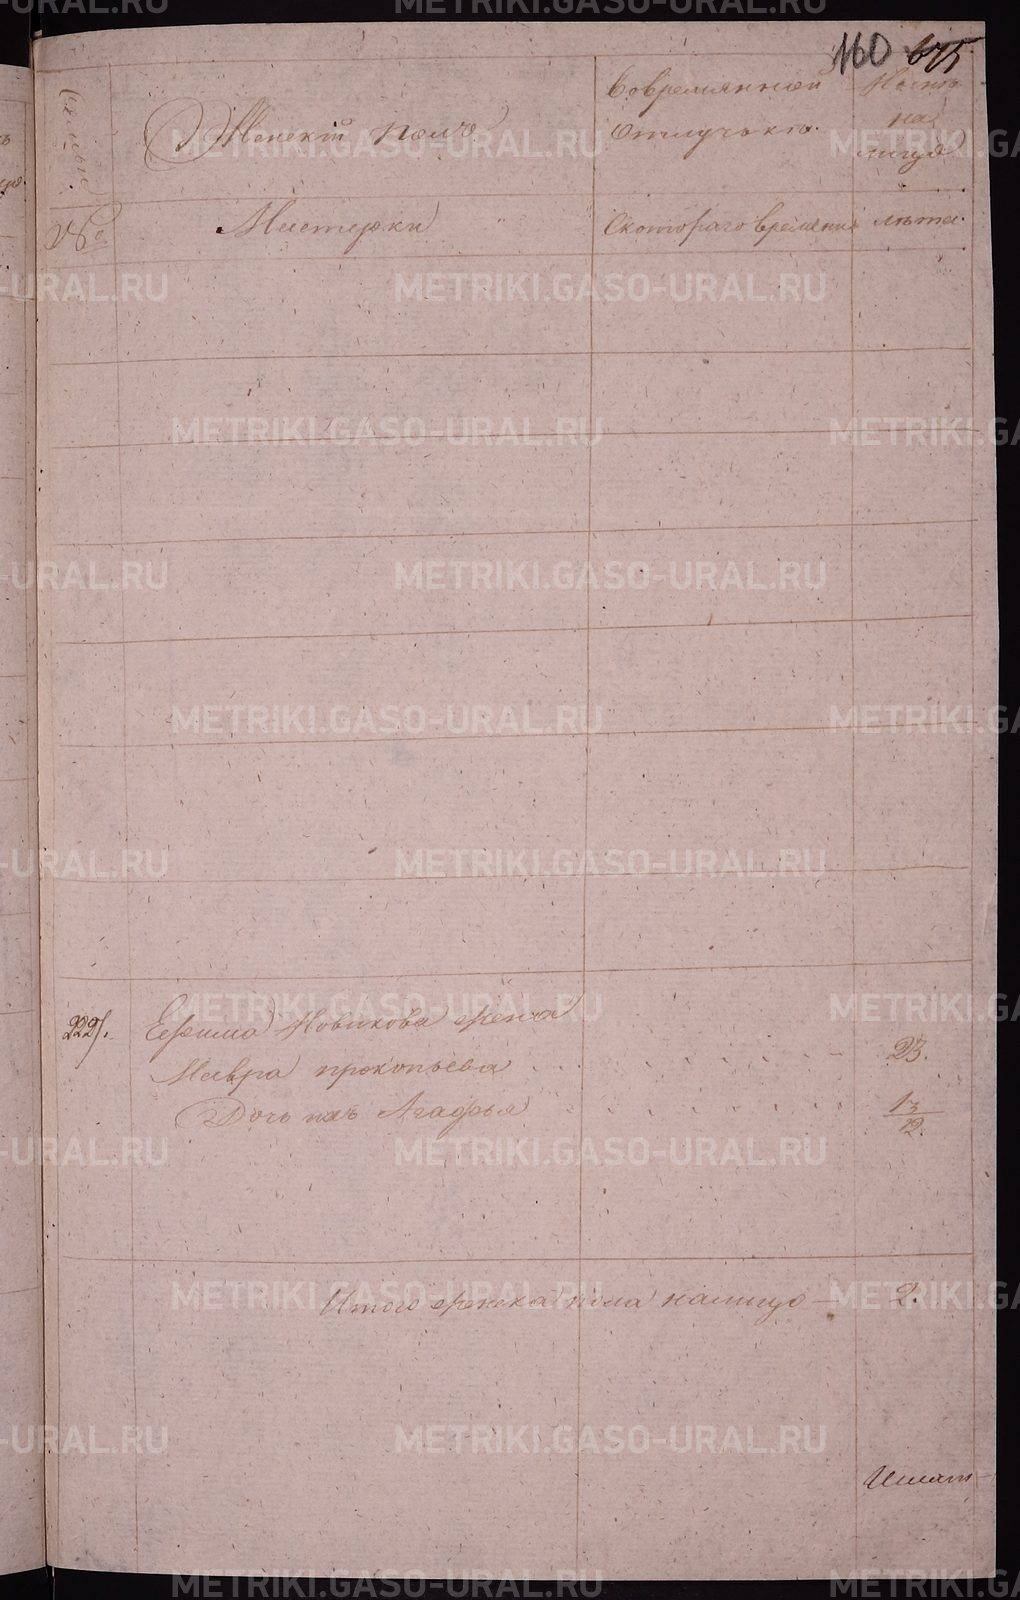 160 675
Женскій полъ
Вовременной отлучькѣ.
Ныне на лицо
семьи
№
Мастерки
Скотораго времени
лѣта.
229.
Ефима Новикова жена
Мавра прокопьева . . . 23.
Дочь ихъ Агафья 13/12.
Итого женска пола налицо — 2.
METRIKI.GASO-URAL.RU